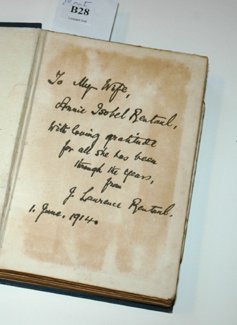 B28
To My Wife,
Annie Isobel Rentoul,
With loving gratitude
for all she has been
through the years,
from
J. Laurence Rentoul.
1. June. 1914.